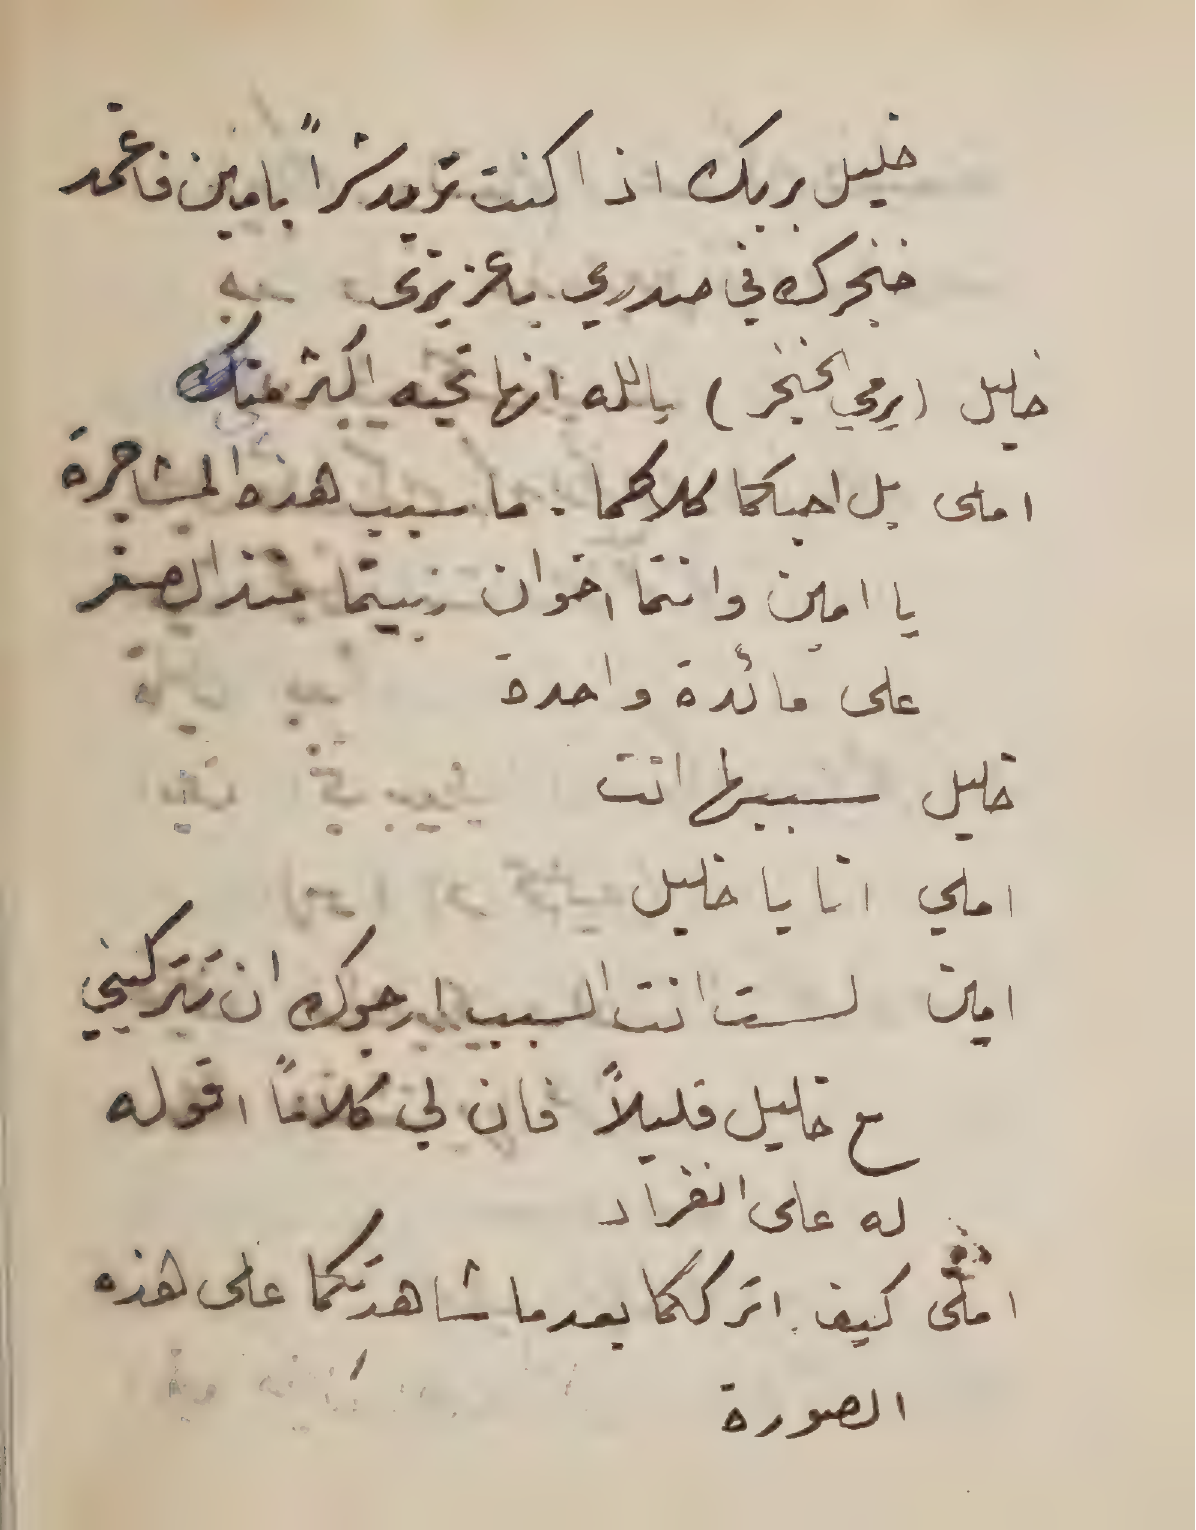 خليل بربك اذا كنت تريد شراً بامين فاغمد
خنجرك في صدري ياعزيزتى
خليل (يرمي الخنجر) يالله انها تحبه اكثر منك
املى بل احبكما كلاكما . ما سبب هذه المشاجرة
يا امين وانتما اخوان ربيتما منذ الصغر
على مائدة واحدة
خليل سببها انت
املي انا يا خليل
امين لست انت السبب ارجوك ان تتركيني
مع خليل قليلاً فان لي كلاماً اقوله
له على انفراد
املى كيف اترككما بعد ما شاهدتكما على هذه
الصورة